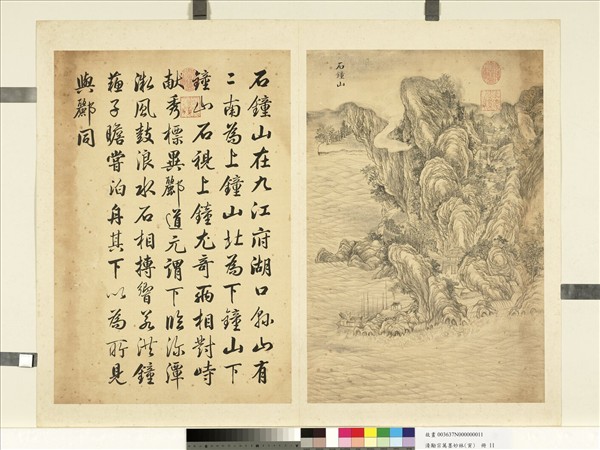 石鐘山
石鐘山在九江府湖口縣山有
二南為上鐘山北為下鐘山下
鐘山石視上鐘尤奇兩相對峙
献秀標異酈道元謂下臨深潭
微風鼓浪水石相搏響若洪鐘
蘇子瞻嘗泊舟其下以為所見
與酈同
故畫 003637N000000011
清勵宗萬墨妙珠林 冊 11